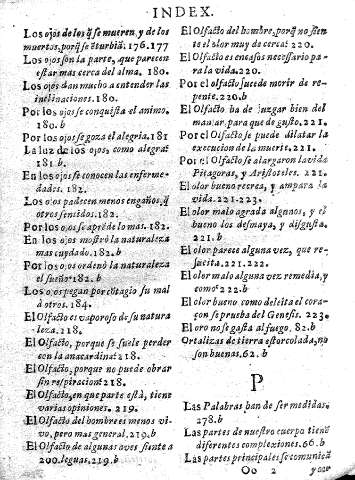 INDEX.
Los ojos de los q̃ se mueren, y de los
muertos, porq̃ se ẽturbiã. 176. 177
Los ojos son la parte, que parecen
estar mas cerca del alma. 180.
Los ojos dan mucho a entender las
inclinaciones. 180.
Por los ojos se conquista el animo.
180. b
Por los ojos se goza el alegria. 181
La luz de los ojos, como alegra?
181 b.
En los ojos se conocen las enferme-
dades. 182.
Los ojos padecen menos engaños, q̃
otros sensidos. 182.
Por los ojos se apr̃ede lo mas. 182.
En los ojos mostrò la naturaleza
mas cuydado. 182. b
Por los ojos ordenò la naturaleza
el sueño? 182. b
Los ojos pegan por cõtagio su mal
à otros. 184.
El Olfato es vaporoso de su natura
leza. 218.
El Olfacto, porque se suele perder
con la anacardina? 218.
El Olfacto, porque no puede obrar
sin respiracion? 218.
El Olfacto, en que parte està, tiene
varias opiniones. 219.
El Olfacto del hombre es menos vi-
vo, pero mas general. 219. b
El Olfacto de algunas aves siente a
200. leguas. 219. b
El Olfacto del hombre, porq̃ no siẽn
te el olor muy de cerca? 220.
El Olfacto es en casos necessario pa-
ra la vida. 220.
Por el olfacto sucede morir de re-
pente. 220. b
El Olfacto ha de juzgar bien del
manjar, para que dè gusto. 221.
Por el Olfacto se puede dilatar la
execucion de la muerte. 221.
Por el Olfacto se alargaron la vida
Pitagoras, y Aristoteles. 221.
El olor bueno recrea, y ampara la
vida. 221. 223.
El olor malo agrada algunos, y el
bueno los desmaya, y disgusta.
221. b.
El olor parece alguna vez, que re-
sucita. 221. 222.
El olor malo alguna vez remedia, y
como? 222. b
El olor bueno como deleita el cora-
çon se prueba del Genesis. 223.
El oro no se gasta al fuego. 82. b
Ortalizas de tierra estercolada, no
son buenas. 62. b
P
Las Palabras han de ser medidas.
278. b
Las partes de nuestro cuerpo tienẽ
diferentes complexiones. 66. b
Las partes principales se comunicã
Oo 2